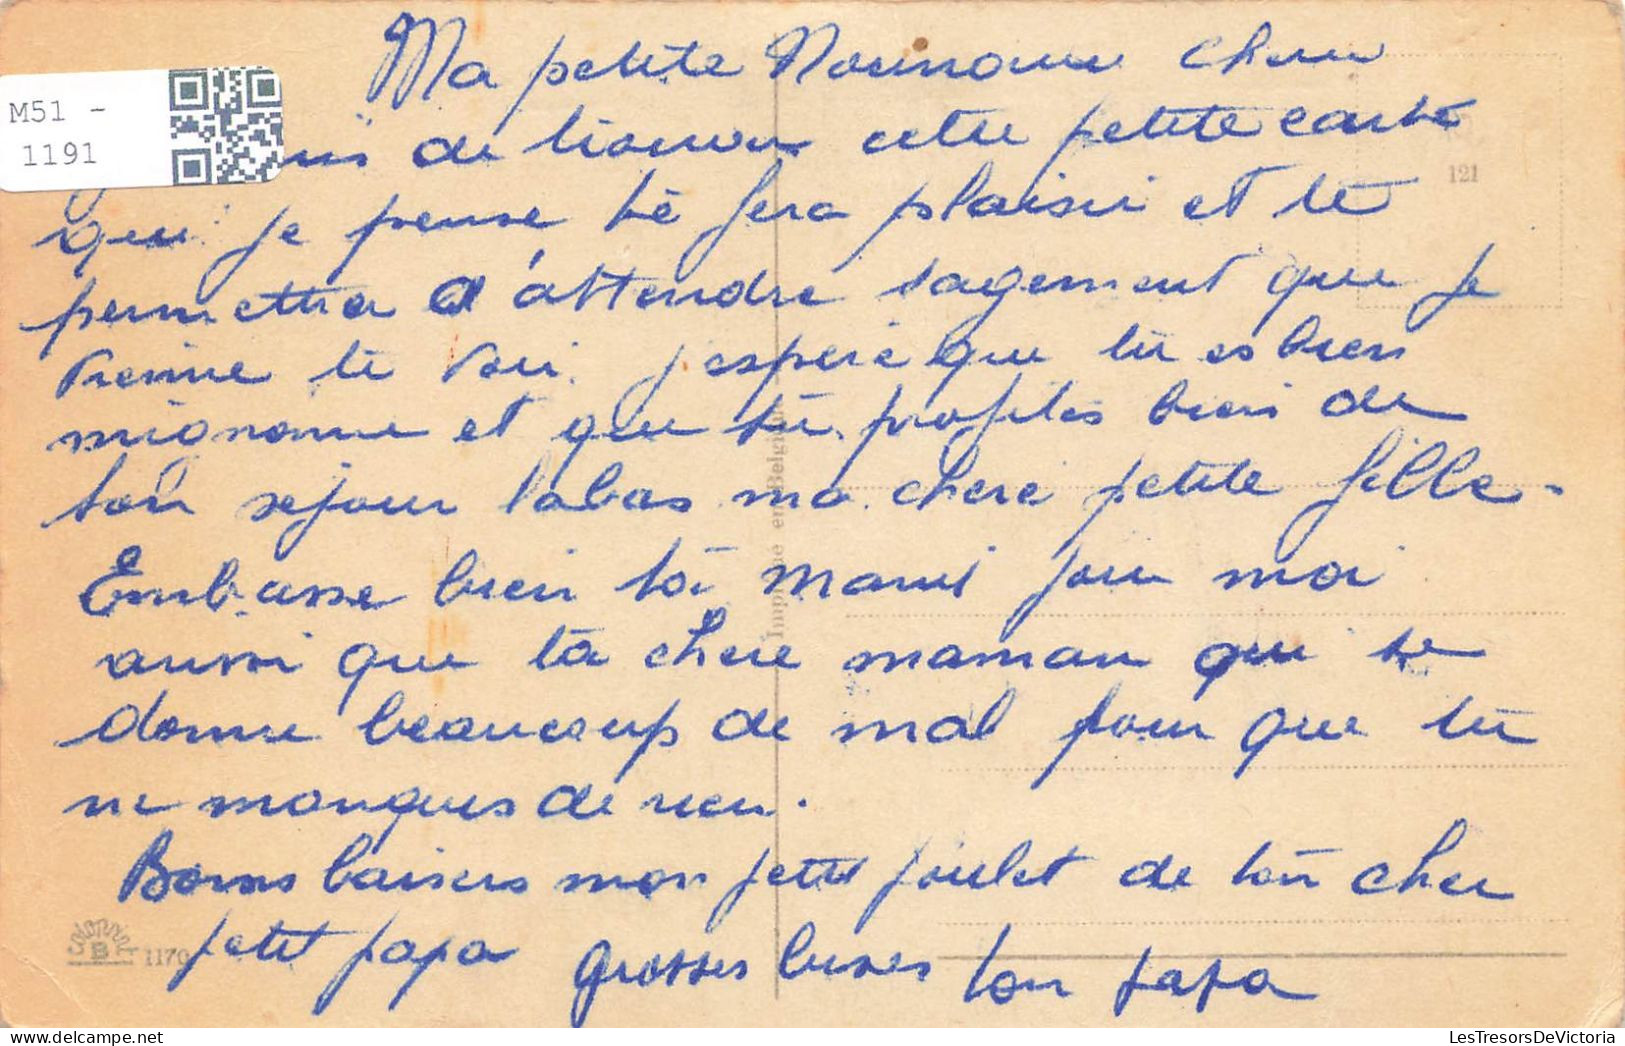 Ma petite Nounoune cherie
M51 -
1191
de trouver cette petite carte
121
que je pense te fera plaisir et te
permettra d'attendre sagement que je
vienne te voir. j'espere que tu es bien
mignonne et que tu profites bien de
ton sejour labas ma chere petite fille -
Embrasse bien ta mami pour moi
aussi que ta chere maman qui se
donne beaucoup de mal pour que tu
ne manques de rien.
Bons baisers mon petit poulet de ton cher
petit papa grosses bises ton papa
Imprimé en Belgique
B
1170
LesTresorsDeVictoria